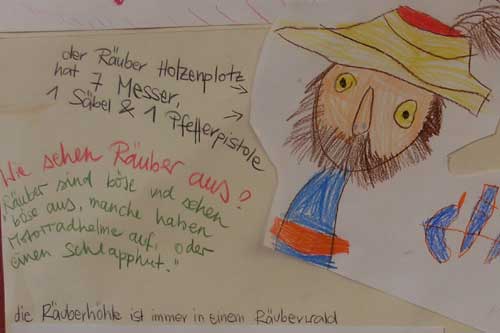 der Räuber Hotzenplotz
hat 7 Messer,
1 Säbel & 1 Pfefferpistole
Wie sehen Räuber aus?
"Räuber sind böse und sehen
böse aus, manche haben
Motorradhelme auf, oder
einen Schlapphut."
die Räuberhöhle ist immer in einem Räuberwald